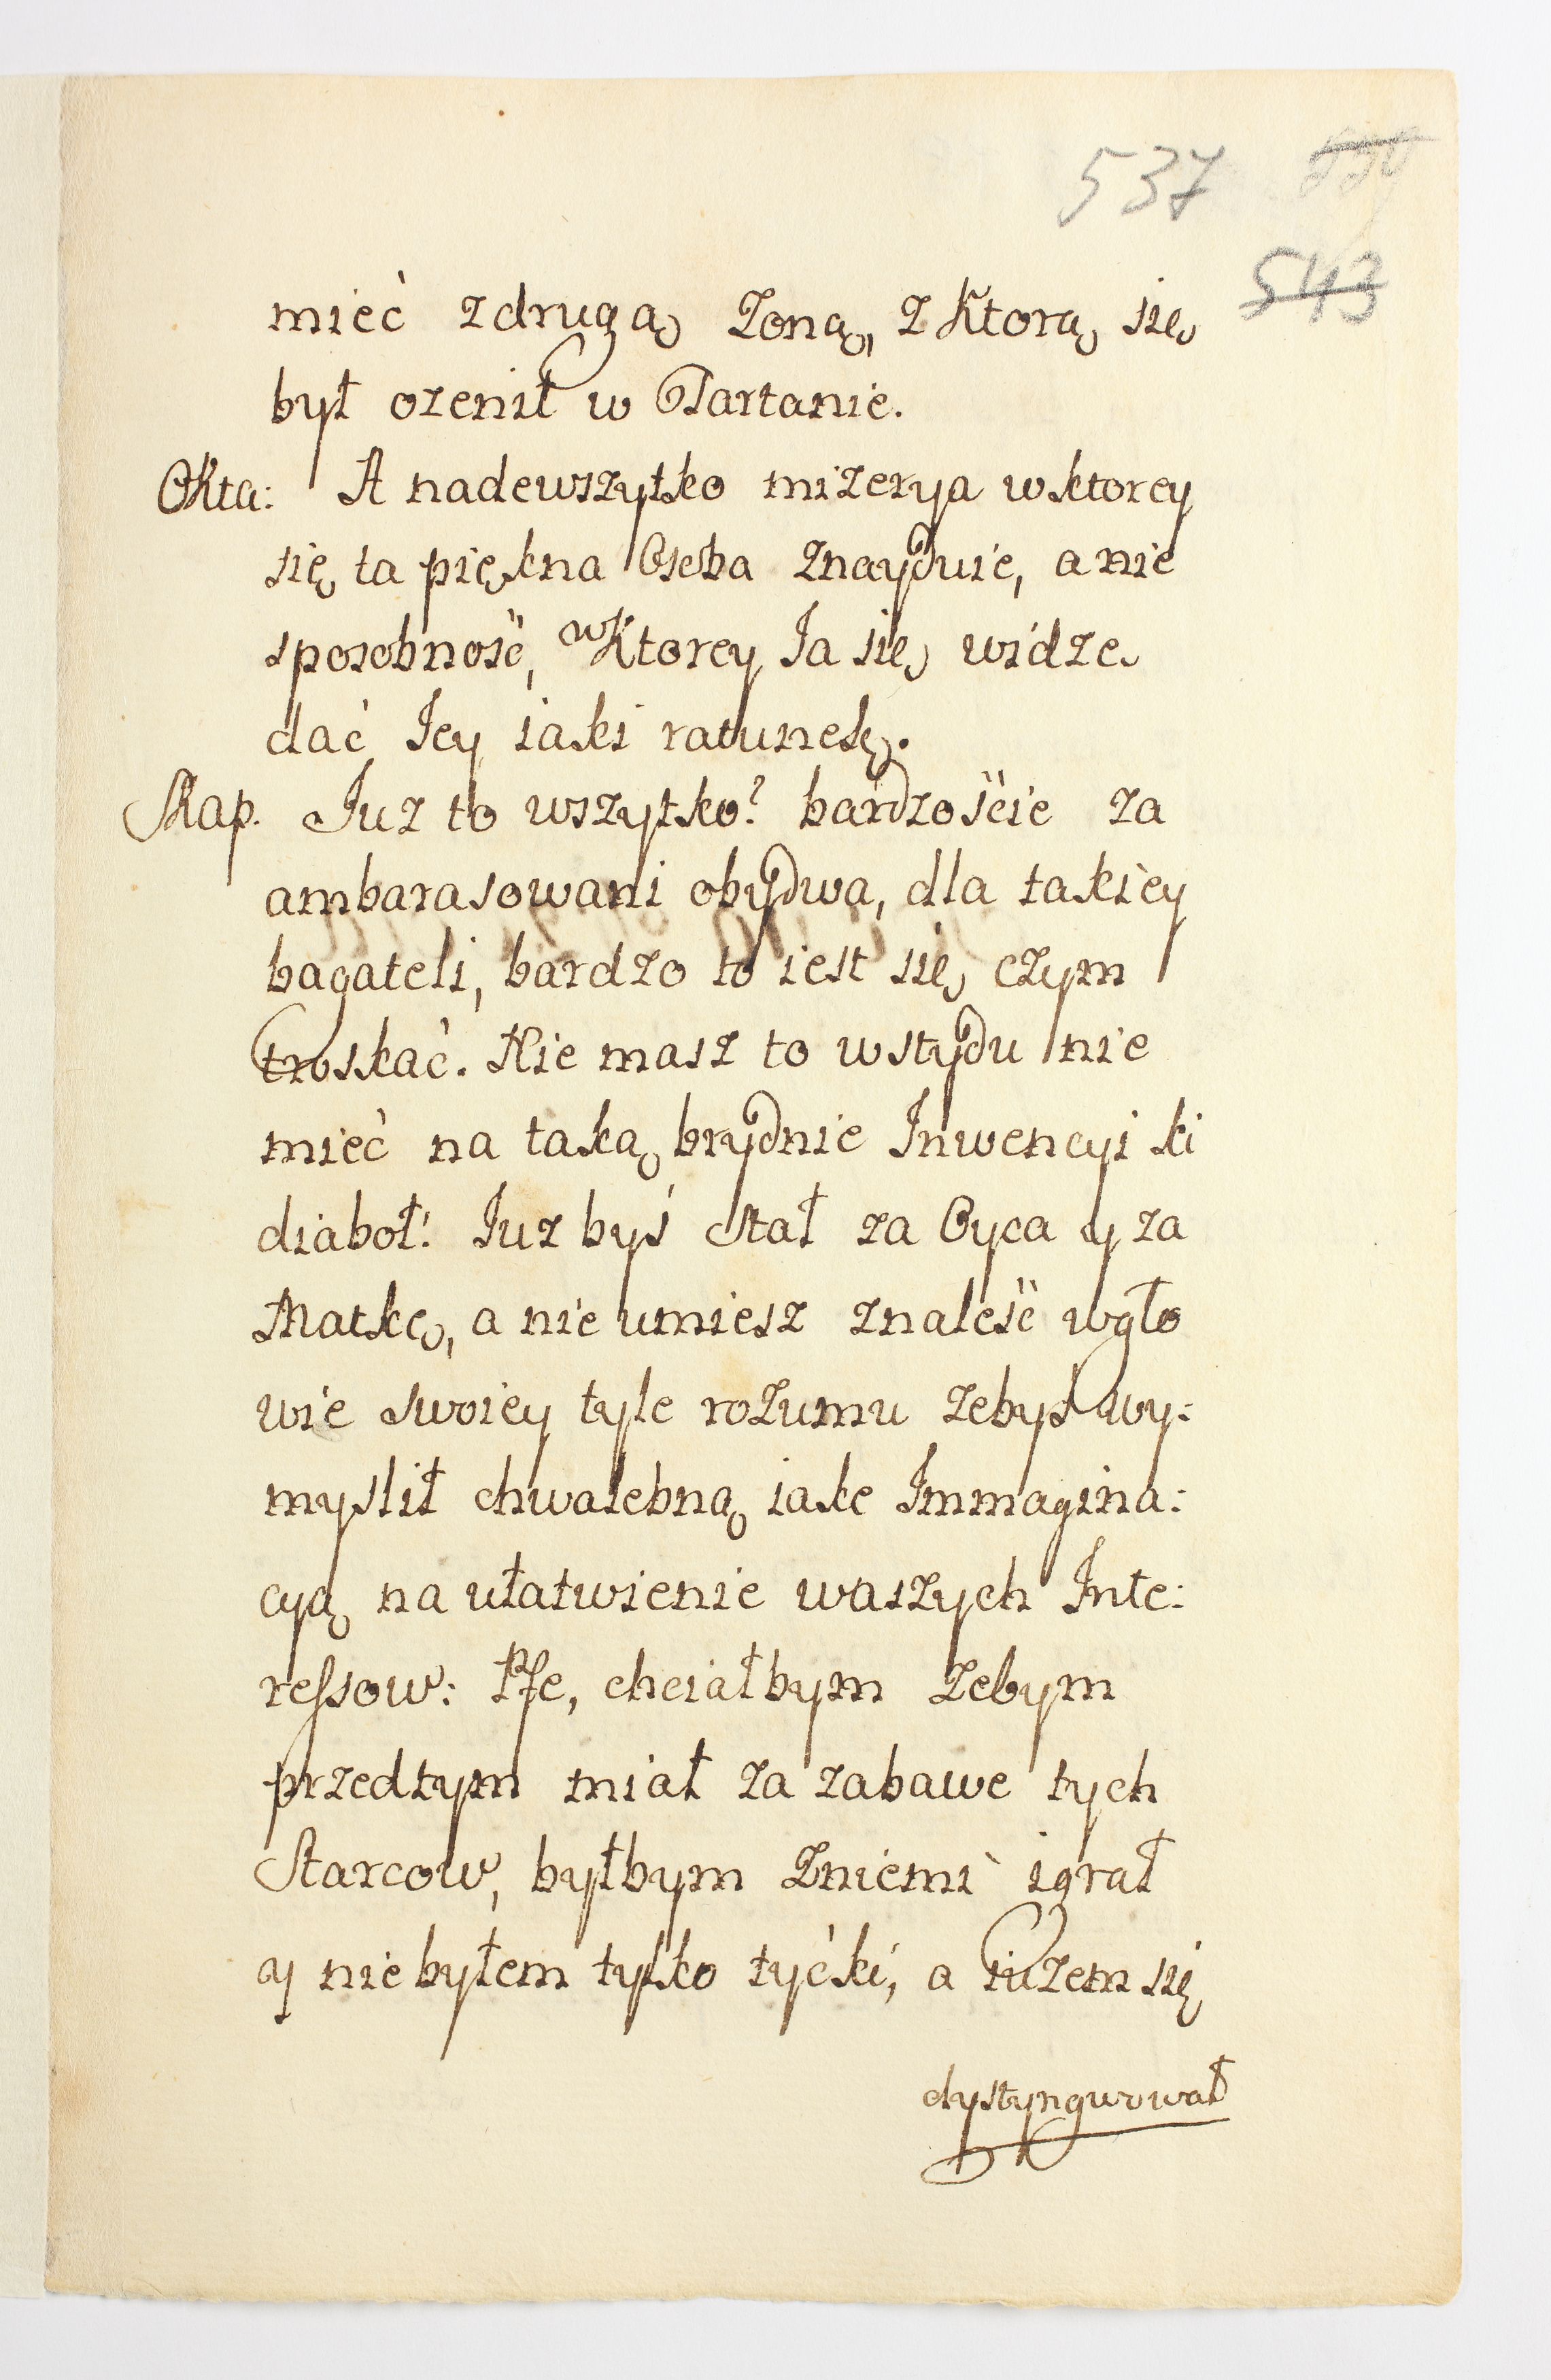 537
543
mieć zdrugą Zoną, z Ktorą się
był ozenił w Tartanie.
Okta: A nadewszytko mizerya wktorey
się ta piękna Osoba znayduie, a nie
sposobność, w Ktorey Ja się widzę
dać Jey iaki ratunek.
Skap. Juz to wszytko? bardzoście za
ambarasowani obydwa, dla takiey
bagateli, bardzo to iest się czym
troskać. Nie masz to wstydu nie
mieć na taką brydnie Inwencyi ki
diaboł! Juz byś stał za Oyca y za
Matkę, a nie umiesz znaleść wgło
wie swoiey tyle rozumu zebyś wy:
myslił chwalebną iake Immagina:
cyą na ułatwienie waszych Inte:
ressow: Pfe, chciałbym zebym
przedtym miał za zabawe tych
Starcow, byłbym zniemi igrał
y nie byłem tylko tyćki, a iuzem się
dystyngwował